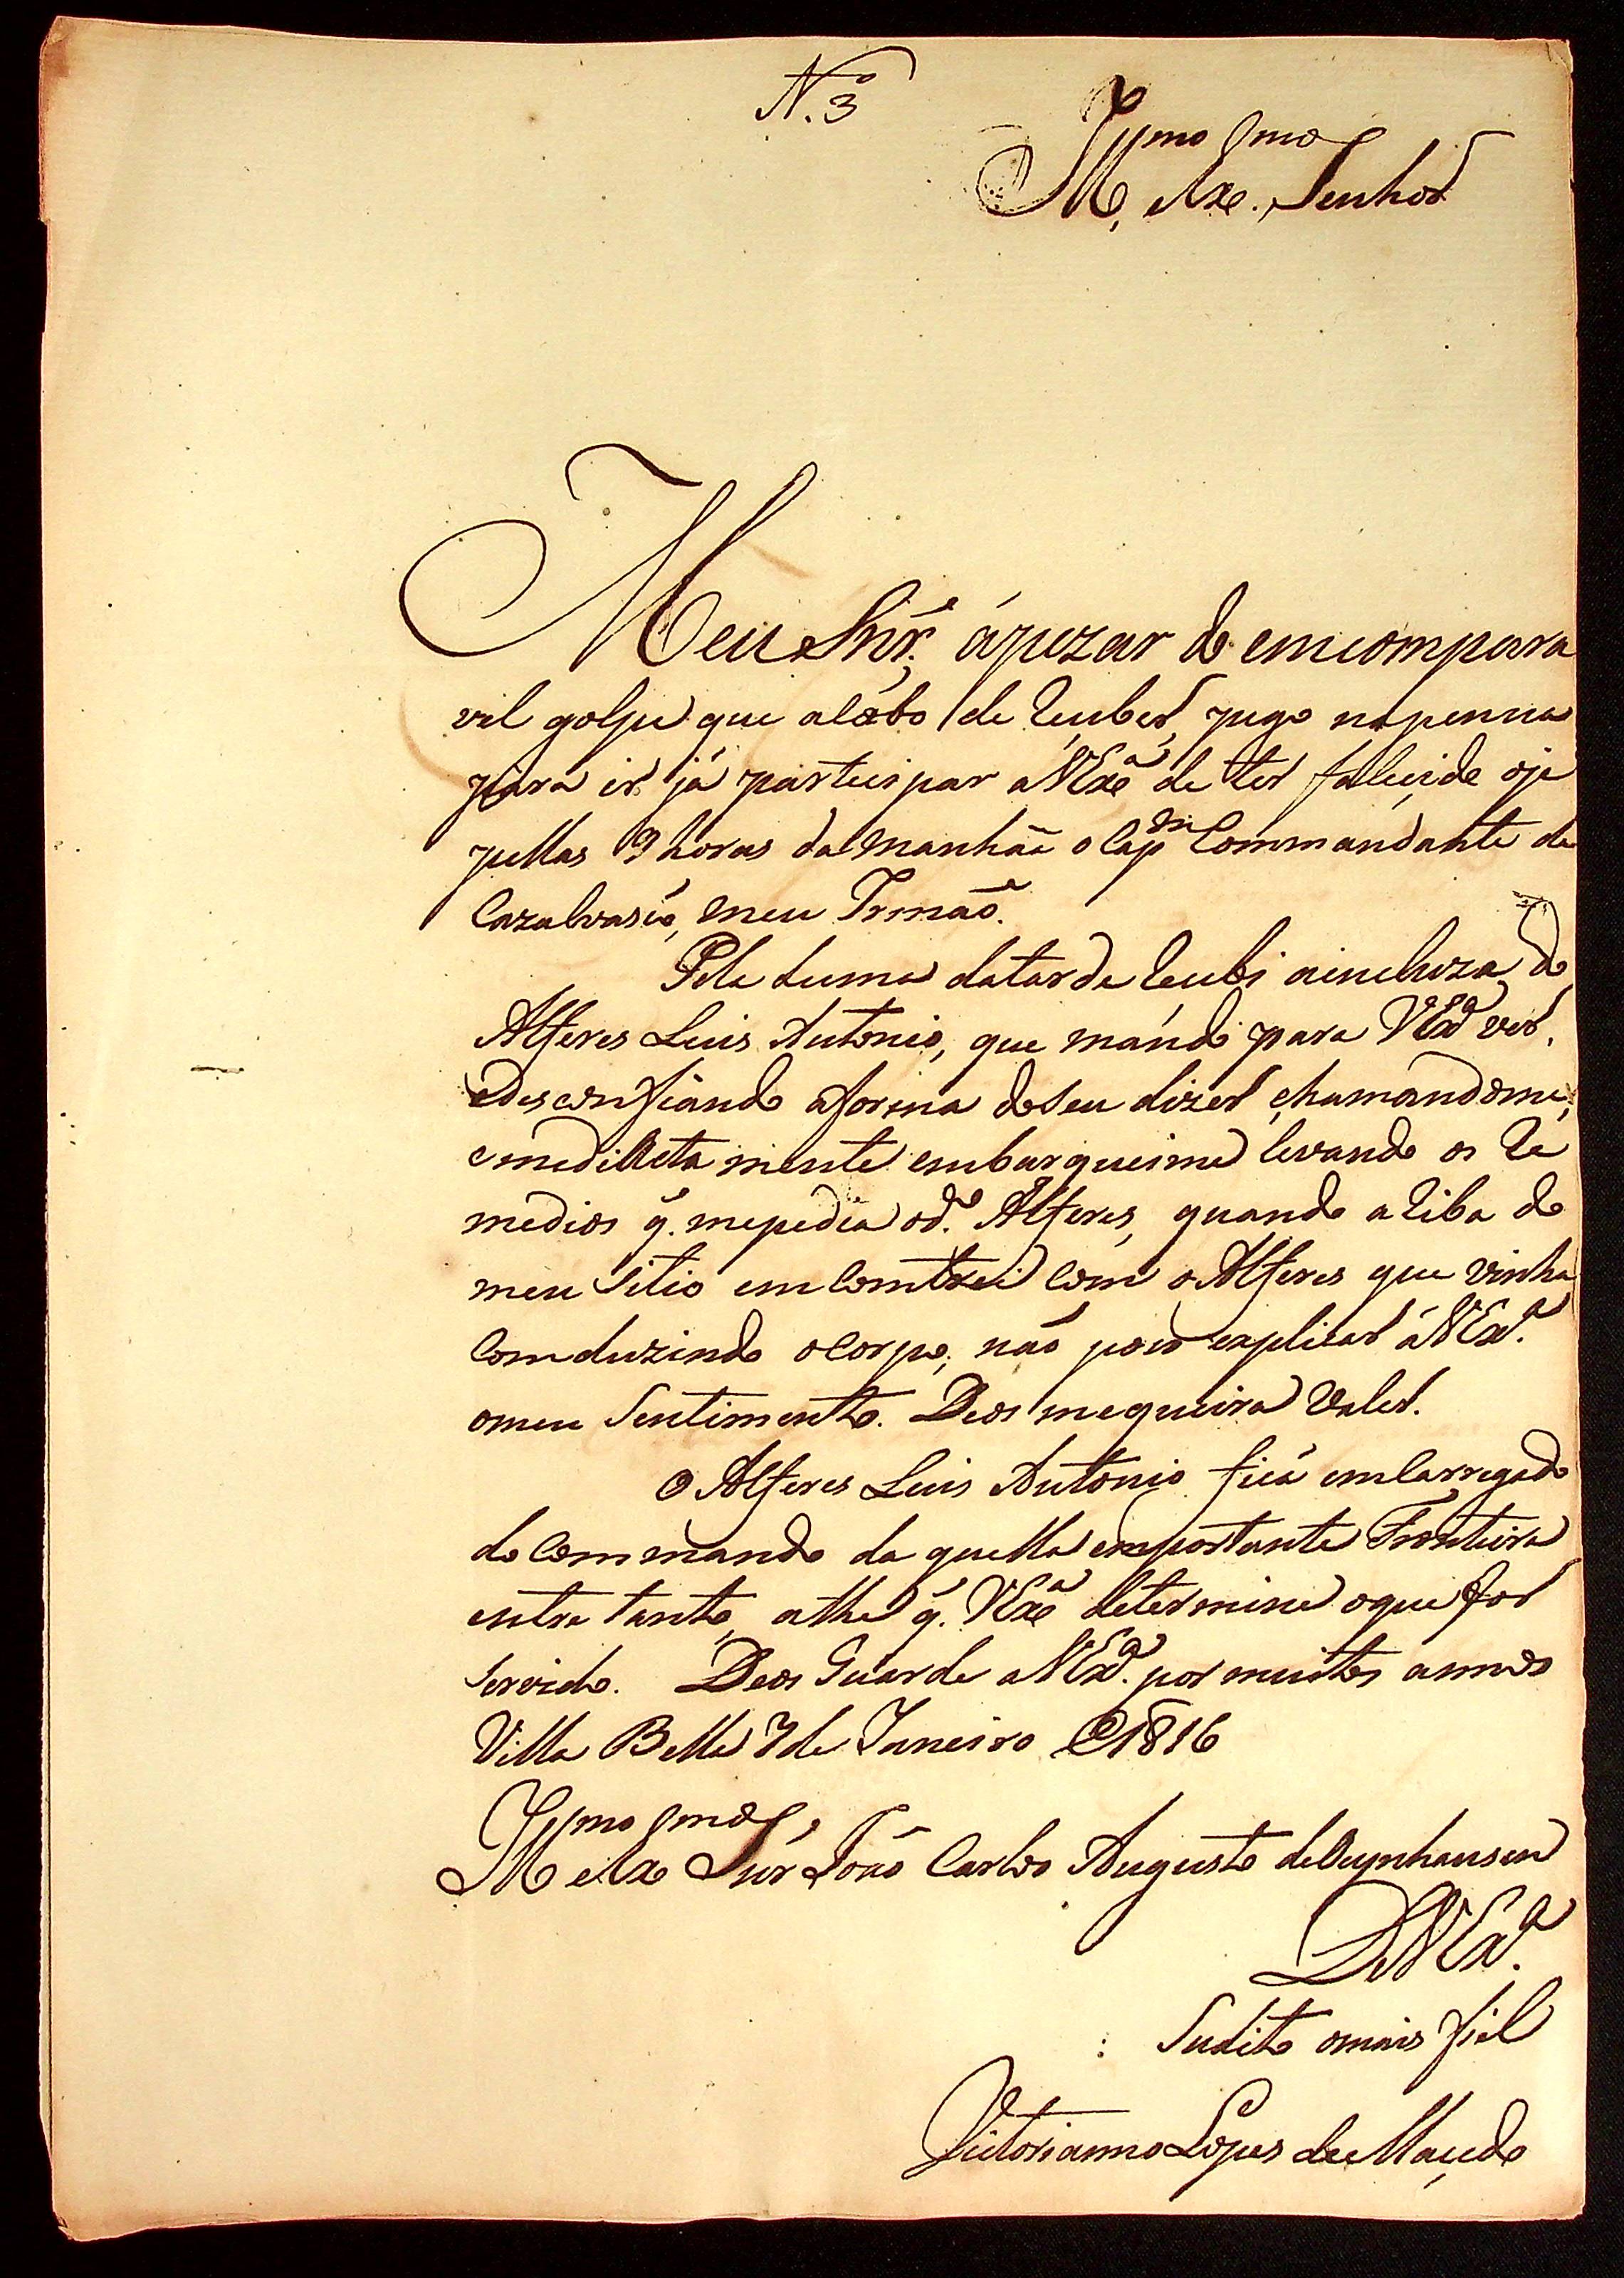 N.º 3
Ill.mo e Ex.mo Senhor
Meu Snr.e, ápezar do emcompara
vel golpe que acábo de Reuber, pego napenna
para ir já partecipar a VEx.a de ter faleçido oje
pellas 9 horas da manhãa o Cap.m Commandante de
Cazalvasco, meu Irmaõ.
Pela huma datarde Recubi aincluza do
Alferes Luis Antonio, que mándo para VEx.a ver,
eDesconfiando aforma doSeu dizer chamandome,
emedilleta mente embarqueime levando os Re
medios q. mepedia od.o Alferes, quando aRiba do
meu Sitio emComtrei Com o Alferes que vinha
Comduzindo oCorpo; não poço explicar áVEx.a
omeu Sentimento. Deos mequeira Valer.
O Alferes Luis Antonio ficá emCarregado
doCommando da quella emportante Fronteira
entre tanto, athe q. VEx.a determine oque for
Servido. Deos Guarde a VEx.a por muitos annos
Villa Bella 7 de Janeiro de 1816
Ill.mo e Ex.mo Snr João Carlos Augusto deOeynhausen
De VEx.a
Sudito omais fiel
Victorianno Lopes de Maçedo